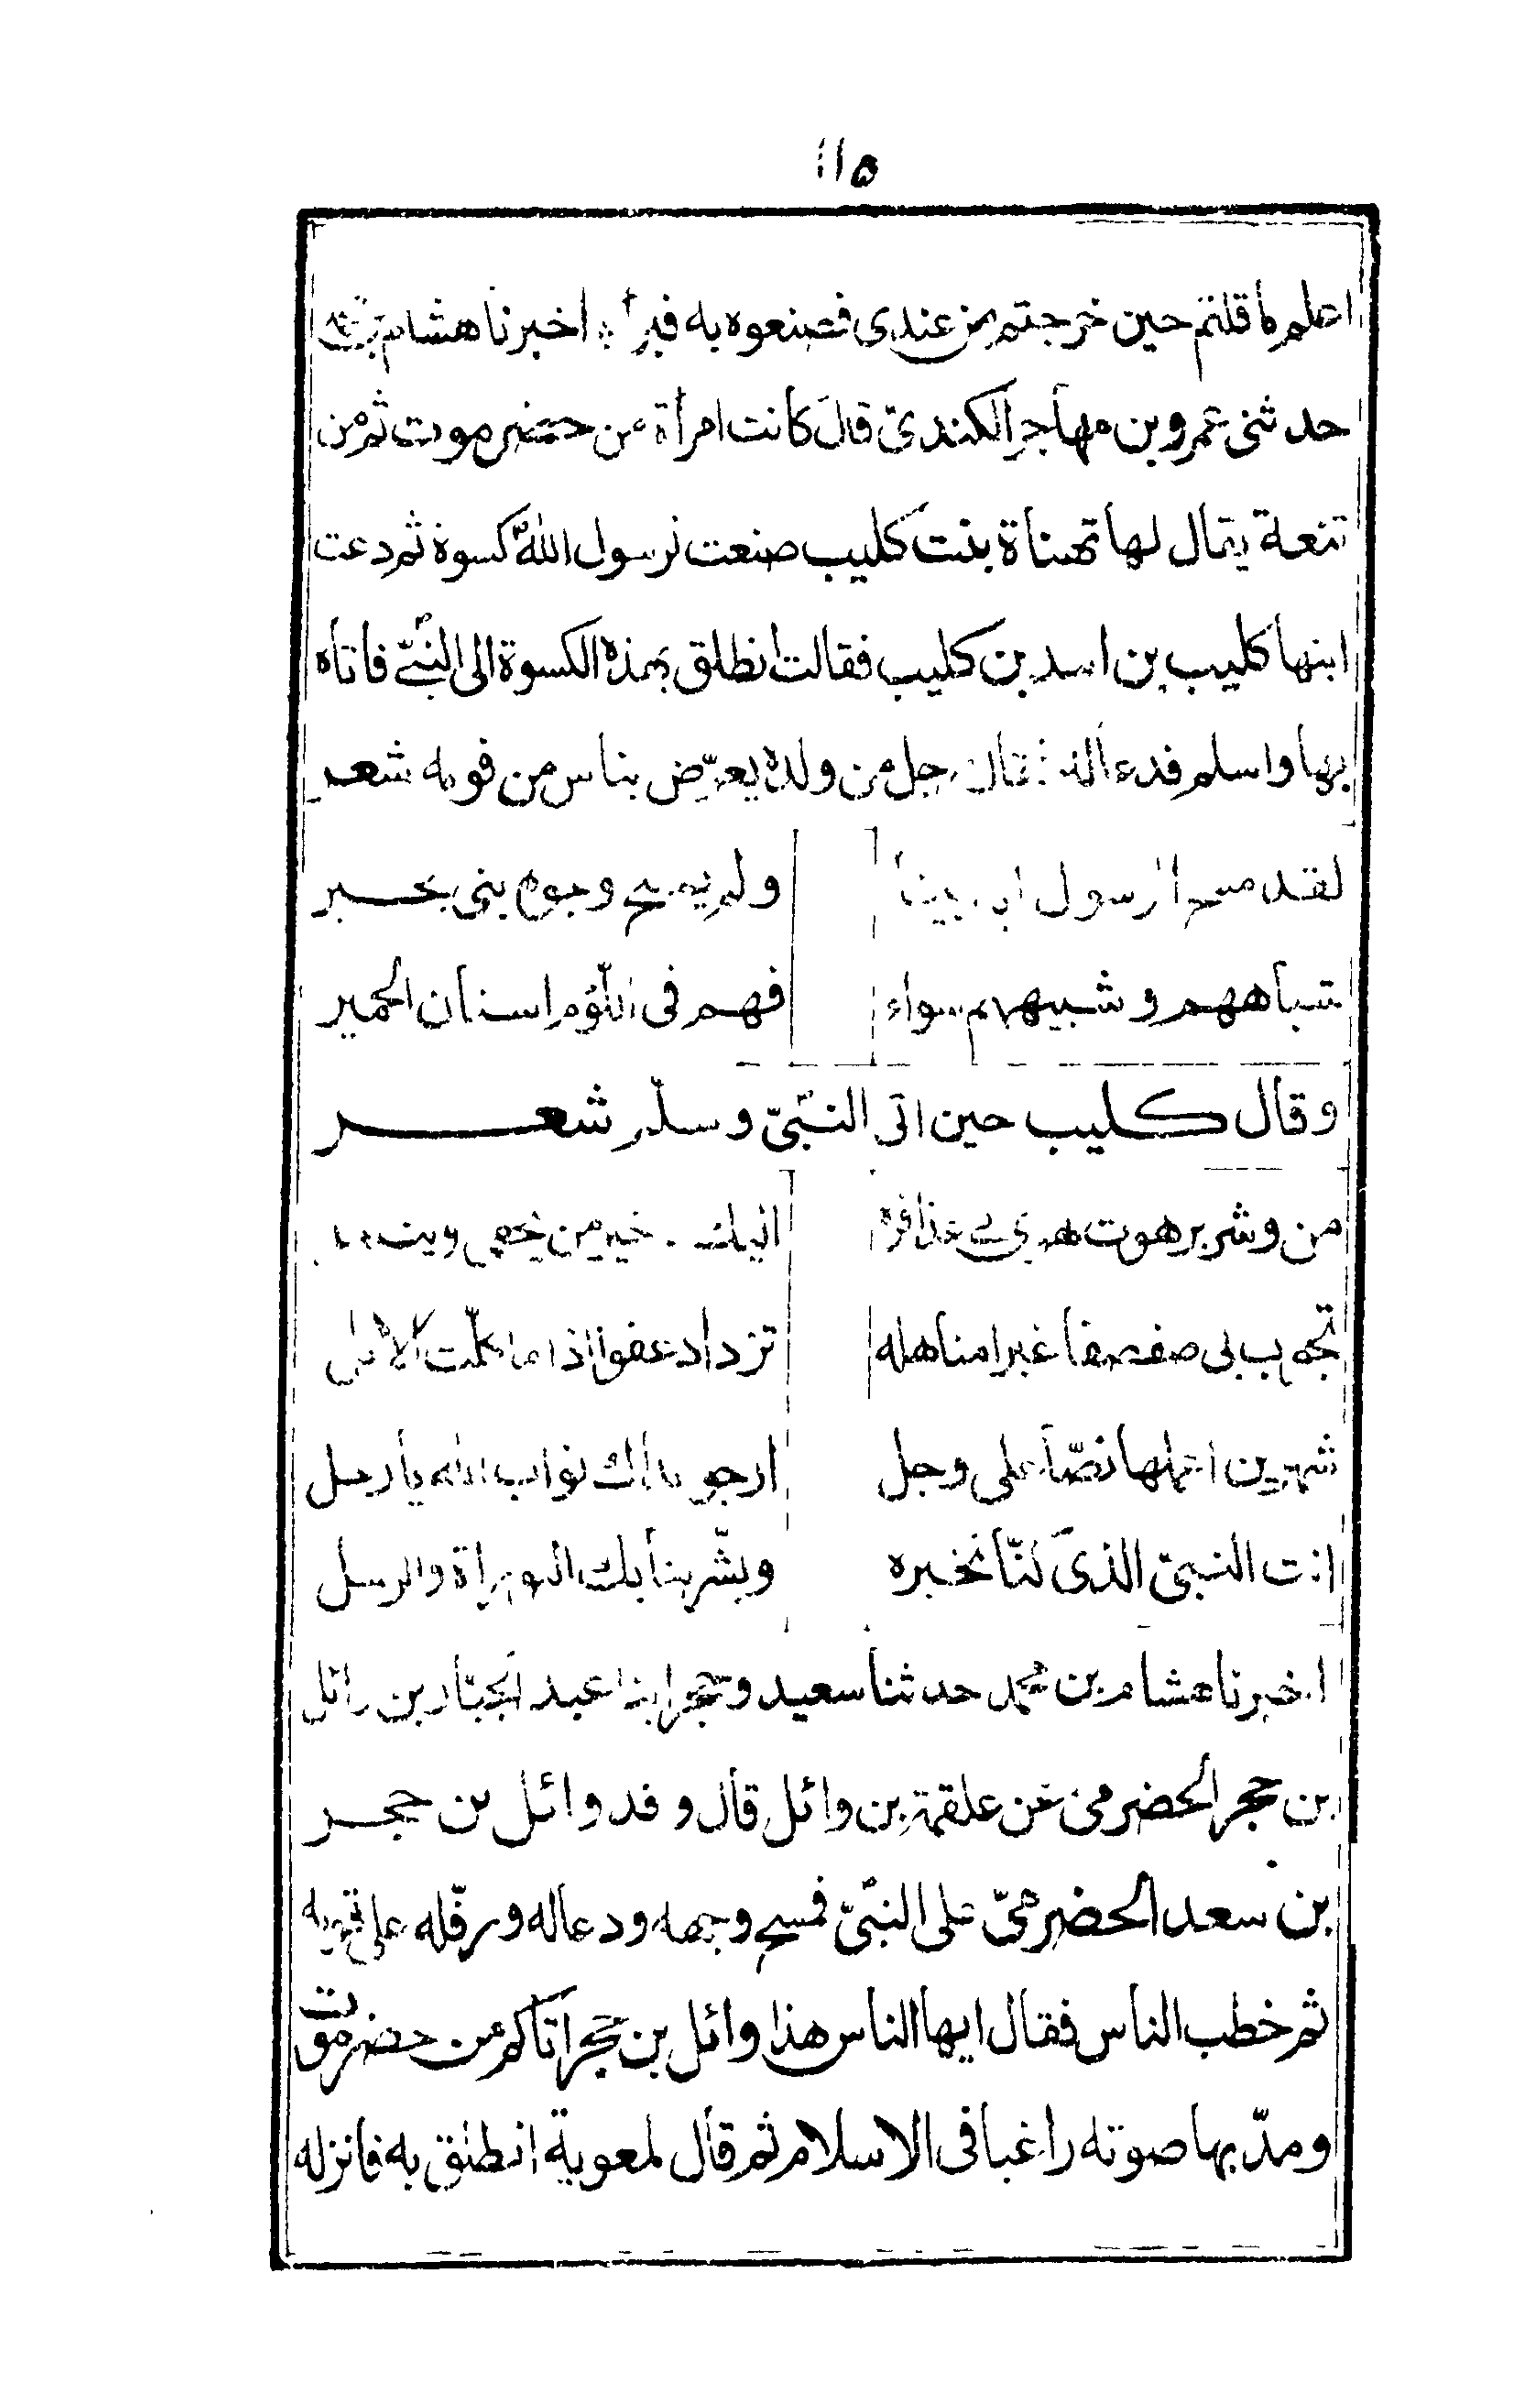 ١١٥
حين خرجتم من عندى فصنعوه به فبرأ اخبرنا هشام بن محمد
حدثنى عمرو بن مهاجر الكندىّ قال كانت امرأة من حضرموت ثم من
تنعة يقال لها تهناة بنت كليب صنعت لرسول اللهؐ كسوة ثم دعت
ابنها كليب بن اسد بن كليب فقالت انطلق بهذه الكسوة الى النبىؐ فاتاه
بها واسلم فدعا له فقال رجل من ولده يعرّض بناس من قومه شعر
لقد مسح الرسول ابا ابينا ولم يمسح وجوه بنى بحير
شبابهم وشيبهم سواء فهم فى اللؤم اسنان الحمير
وقال كليب حين اتى النبىّؐ وسلّم شعر
من وشر برهوت تهوى بى عذافرة اليك خير من يحفى وينتعل
تجوب بى صفصفا غبرا مناهله تزداد عفوا اذا ما كلّت الابل
شهرين اعملها نصّا على وجل ارجو بذاك ثواب الله يا رجل
انت النبىّ الذى كنّا نخبره وبشّرتنا بك التوراة والرسل
اخبرنا هشام بن محمد حدثنا سعيد وحجر ابنا عبد الجبّار بن وائل
بن حجر الحضرمى عن علقمة بن وائل قال وفد وائل بن حجر
بن سعد الحضرمىّ على النبىّؐ فمسح وجهه ودعا له ورفّله على قومه
ثم خطب الناس فقال ايها الناس هذا وائل بن حجر اتاكم من حضرموت
ومدّ بها صوته راغبا فى الاسلام ثم قال لمعوية انطلق به فانزله